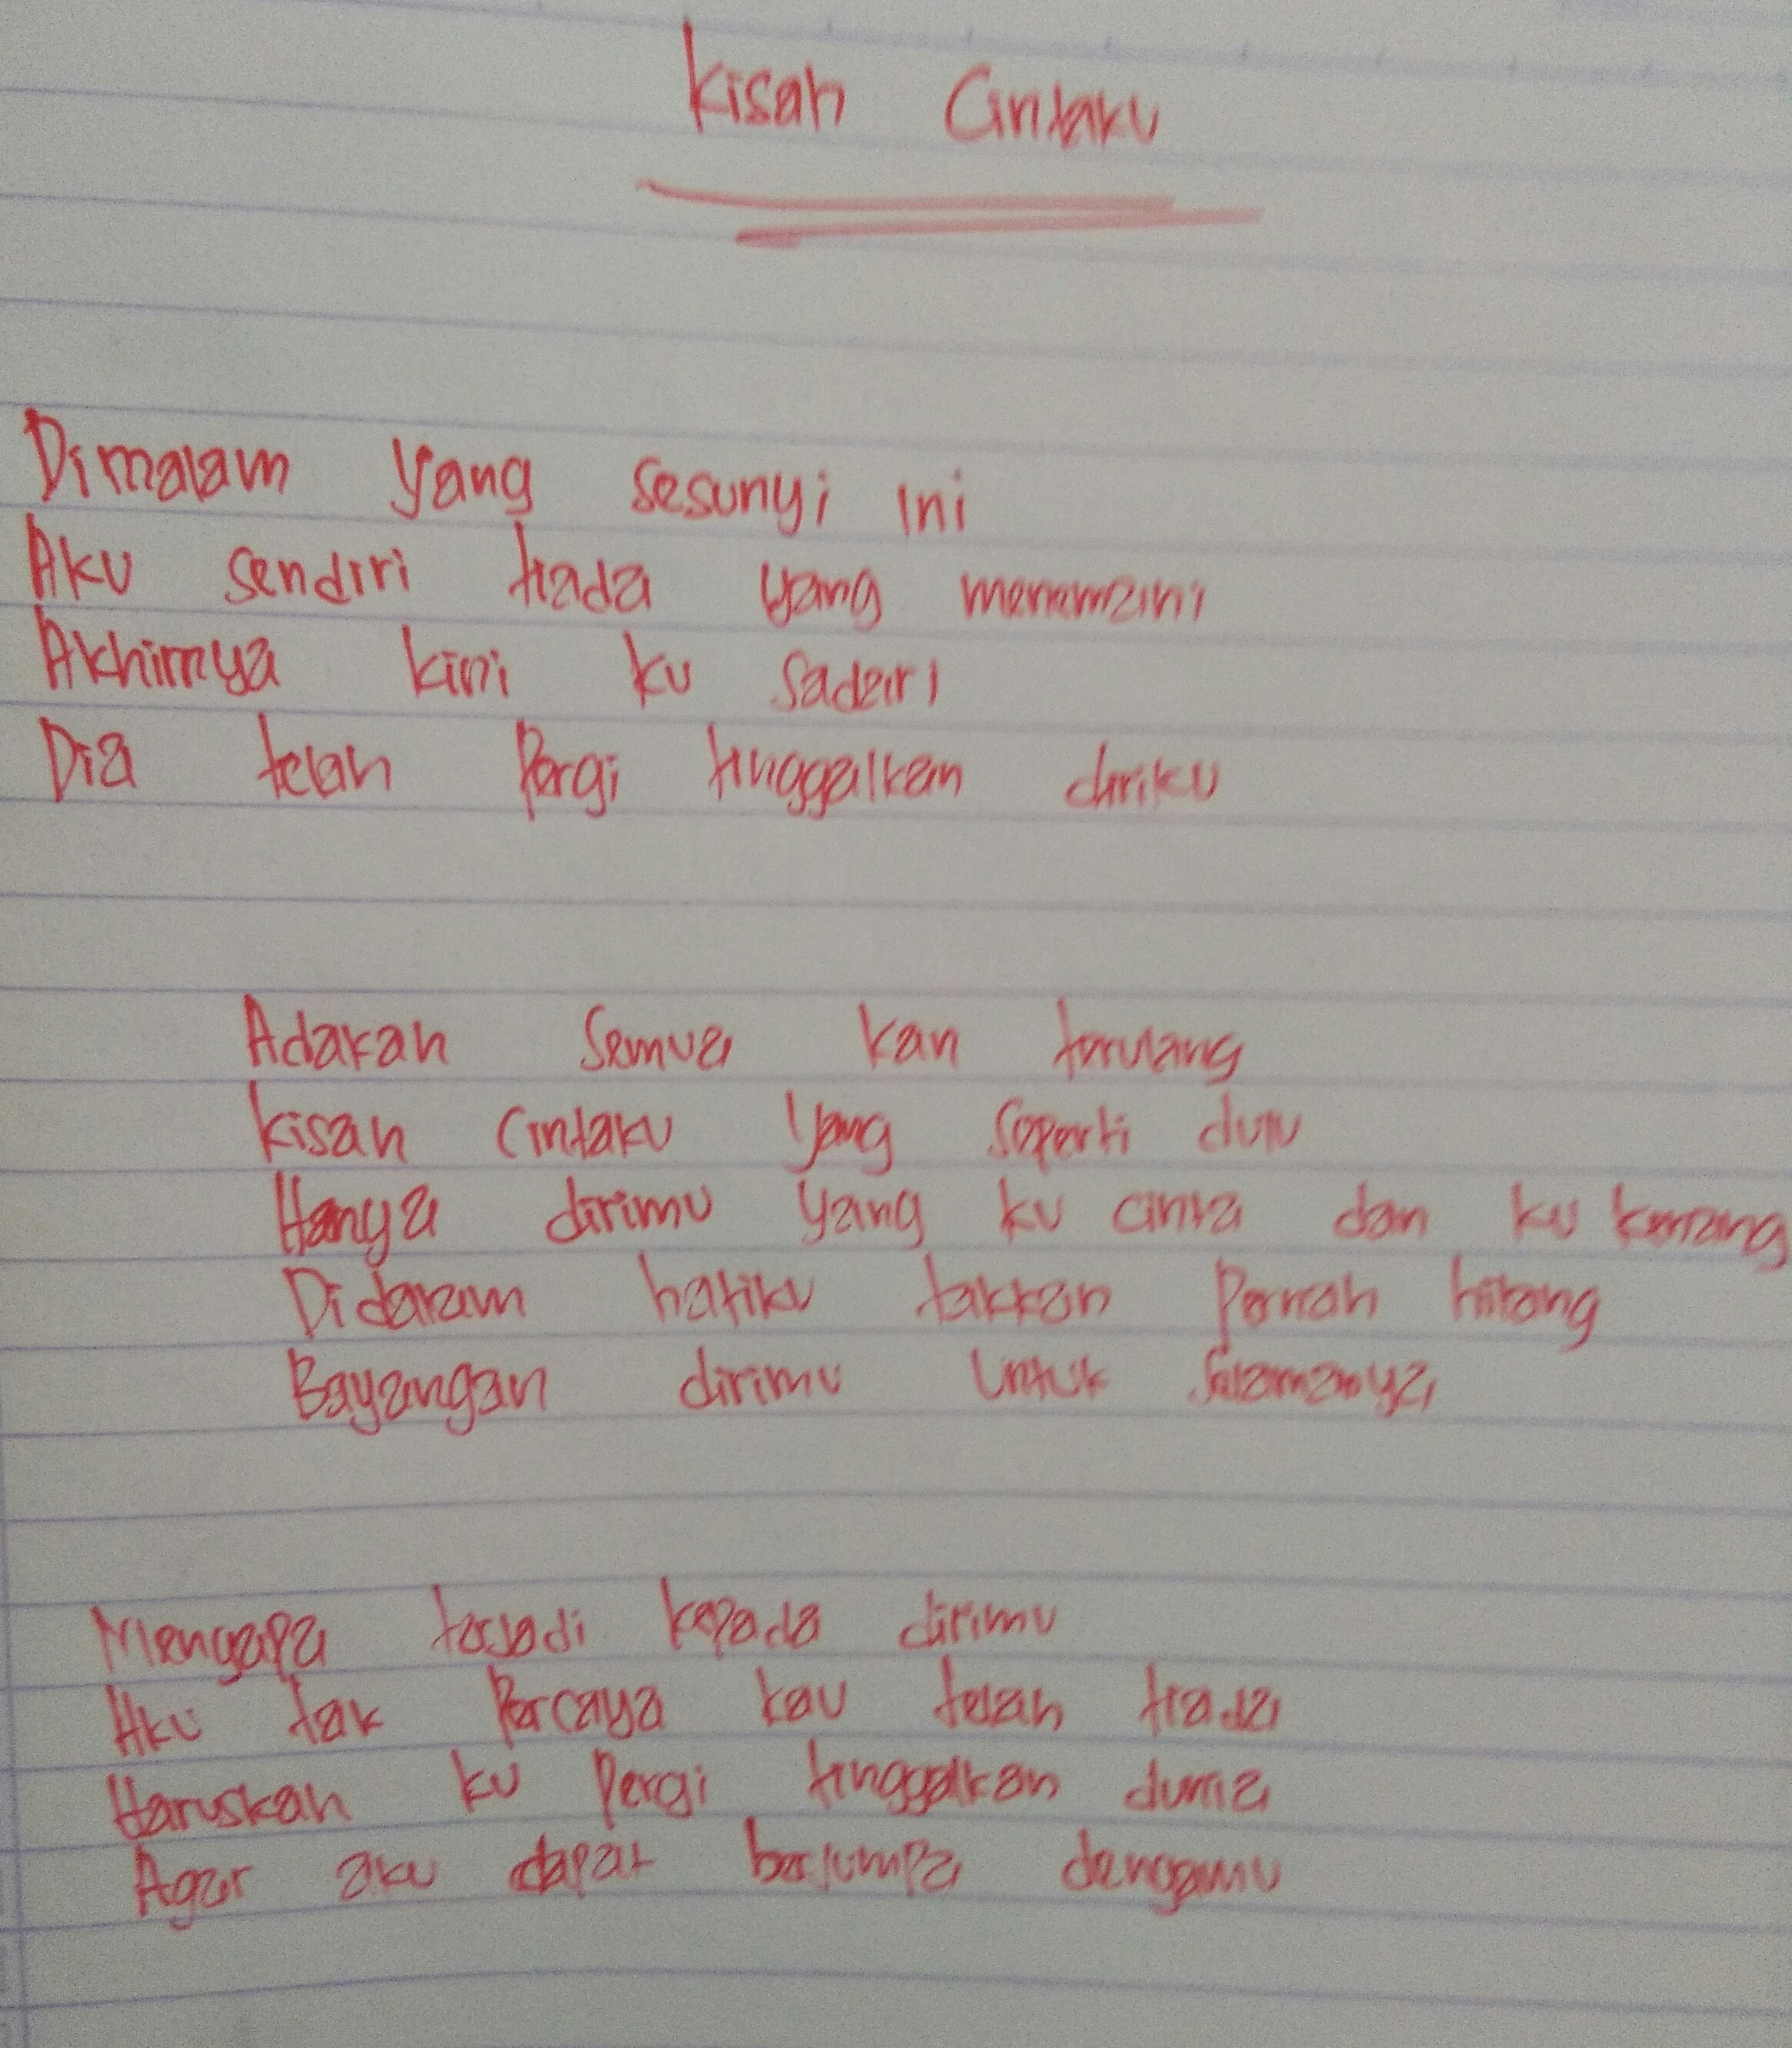 Kisah Cintaku
Dimalam yang sesunyi ini
Aku sendiri tiada yang menemani
Akhirnya kini ku sadari
Dia telah Pergi tinggalkan diriku
Adakah semua kan terulang
kisah Cintaku yang seperti dulu
Hanya dirimu yang ku cinta dan ku kenang
Didalam hatiku takkan Pernah hilang
Bayangan dirimu untuk selamanya
Mengapa terjadi kepada dirimu
Aku tak Percaya kau telah tiada
Haruskah ku Pergi tinggalkan dunia
Agar aku dapat berjumpa dengamu